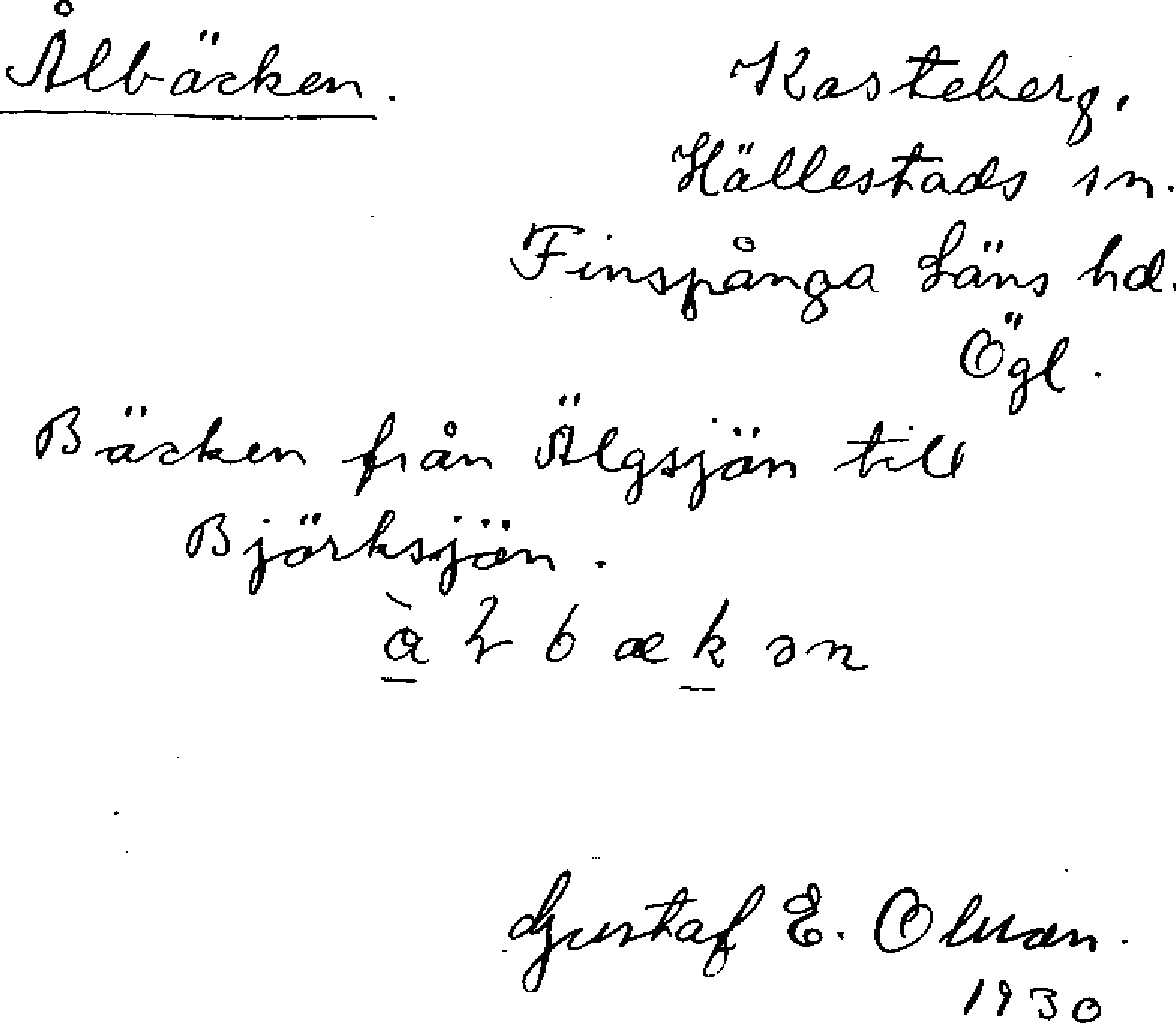 Ålbäcken.
Kasteberg.
Hällestads sn.
Finspånga Läns hd.
Ögl.
Bäcken från Älgsjön till
Björksjön.
Gustaf E. Olson.
1930